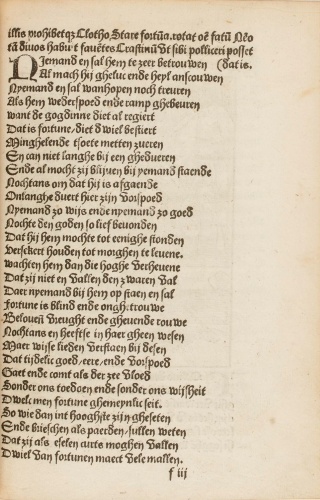 illis prohibetq3 Clotho, Stare fortūa. rotat oē fatū Nēo
tā diuos habuit fauētes Crastinū vt sibi polliceri posset
Nyemand en sal hem te zeer betrouwen (dat is.
Al mach hij gheluc ende heyl anscouwen
Nyemand en sal wanhopen noch treuren
Als hem wederspoed ende ramp ghebeuren
want de gogdinne diet al regiert
Dat is fortune/diet dwiel bestiert
Minghelende tsoete metten zueren
En can niet langhe bij een ghedueren
Ende al mocht zij blijuen bij yemand staende
Nochtans om dat hij is afgaende
Onlanghe duert hier zijn voorspoed
Nyemand zo wijs ende nyemand zo goed
Nochte den goden so lief beuonden
Dat hij hem mochte tot eenighe stonden
Versekert houden tot morghen te leuene.
wachten hem dan die hoghe verheuene
Dat zij niet en vallen den zwaren val
Daer nyemand bij hem op staen en sal
Fortune is blind ende onghetrouwe
Belouen vreught ende gheuende rouwe
Nochtans en heefse in haer gheen wesen
Maer wijse lieden verstaen bij desen
Dat tijdelic goed/eere/ende voorspoed
Gaet ende comt als der zee vloed
Sonder ons toedoen ende sonder ons wijsheit
Dwelc men fortune ghemeynlic seit.
So wie dan int hooghste zijn gheseten
Ende brieschen als paerden/sullen weten
Dat zij als eselen curts moghen vallen
Dwiel van fortunen maect vele mallen.
f iij